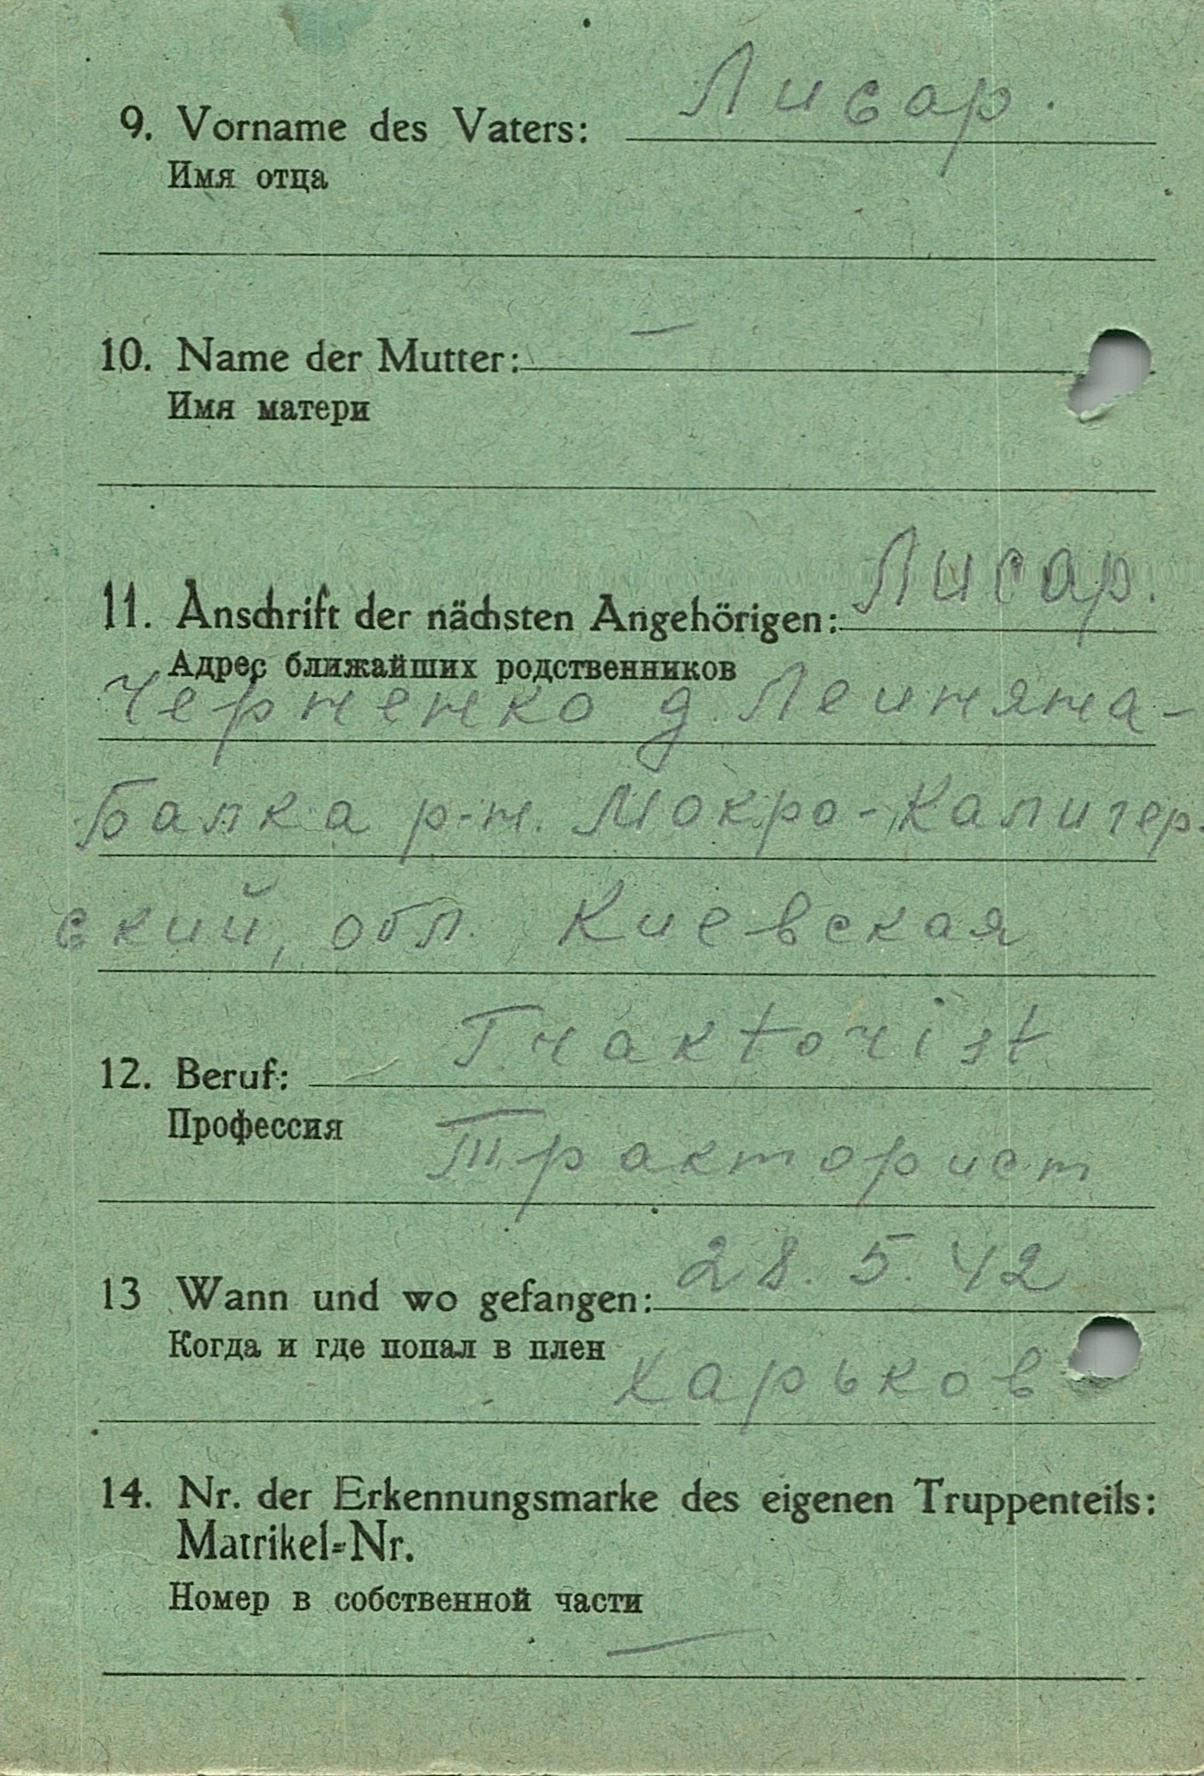 9. Vorname des Vaters: Лисар.
Имя отца
10. Name der Mutter: —
Имя матери
11. Anschrift der nächsten Angehörigen: Лисар.
Адрес ближайших родственников
Черненко д. Леиняна-
Балка р-н. Мокро-Калигер
ский, обл. Киевская
12. Beruf: Traktorist
Профессия Тракторист
13 Wann und wo gefangen: 28. 5 42
Когда и где попал в плен Харьков
14. Nr. der Erkennungsmarke des eigenen Truppenteils:
Matrikel-Nr.
Номер в собственной части —